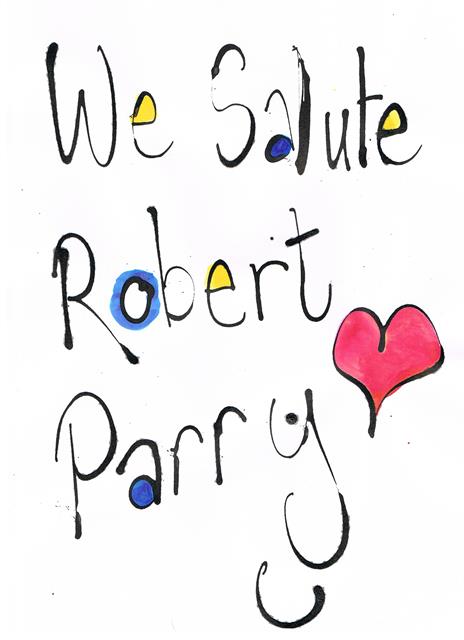 We Salute
Robert
Parry